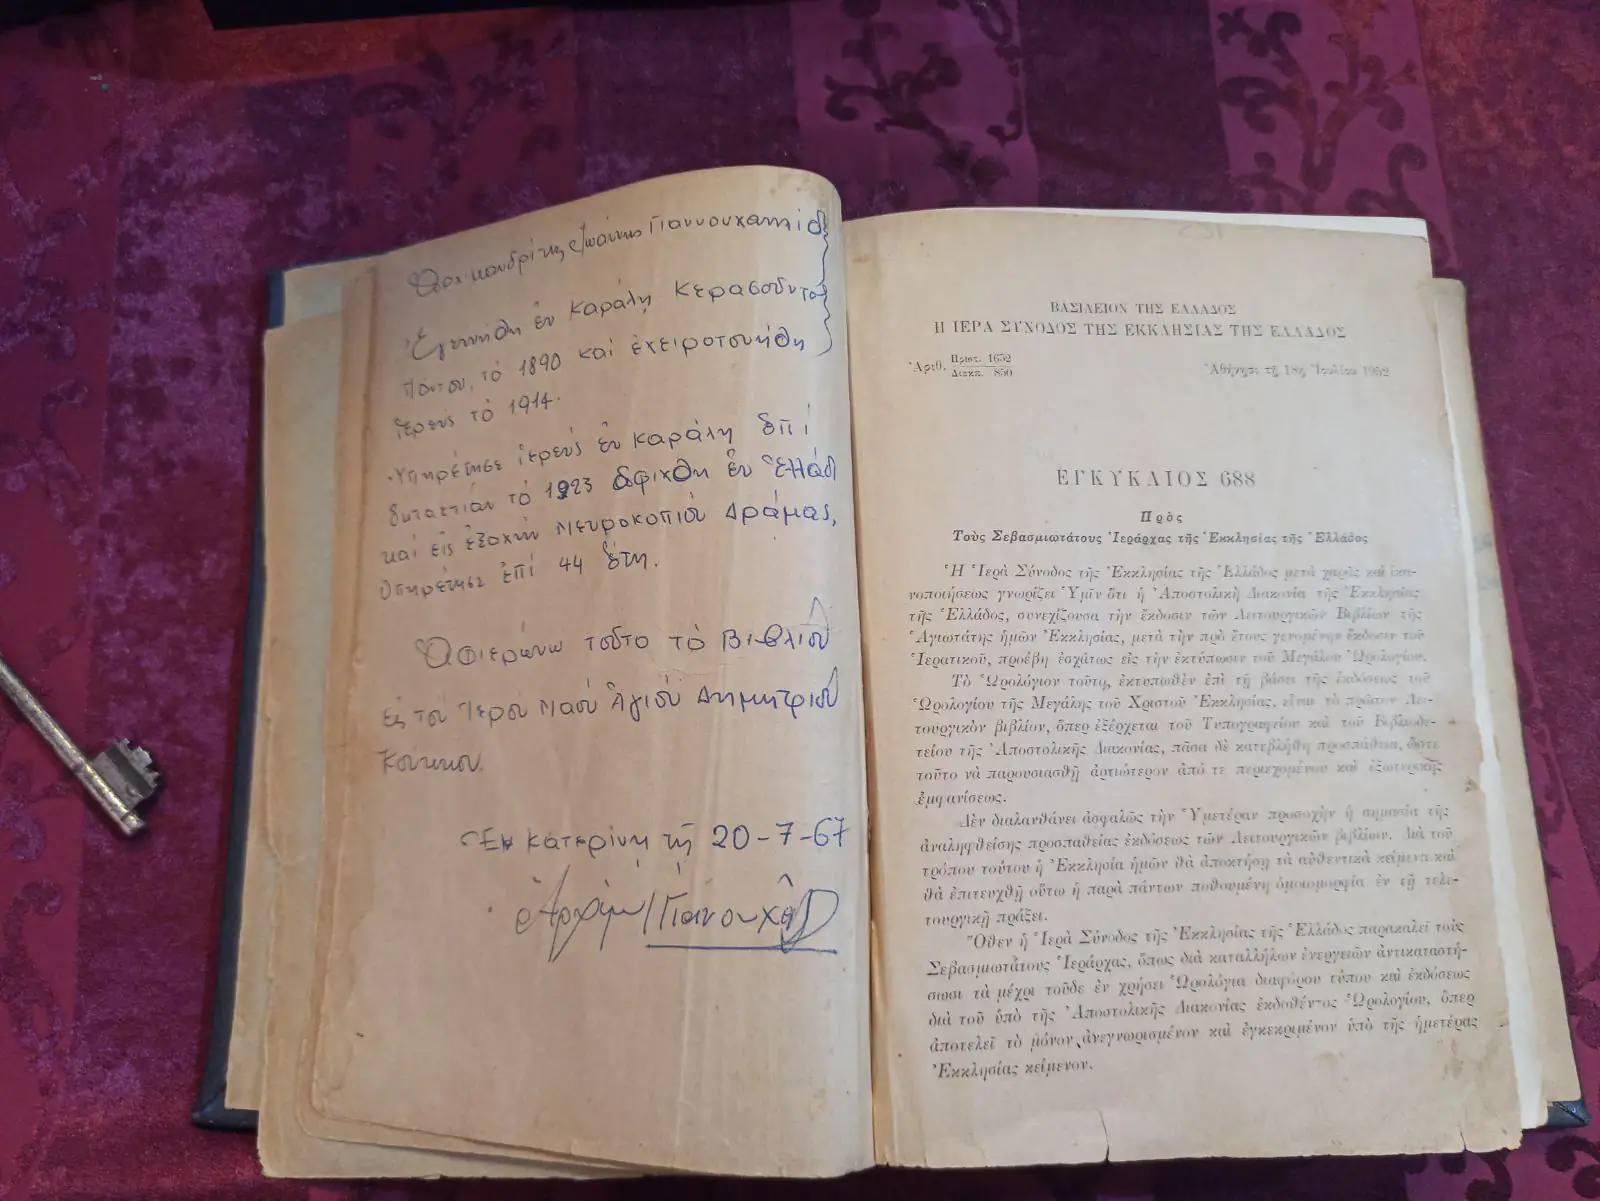 Ἰωάννης Γιαννουχαηλίδ
Ἐγεννήθη ἐν Καράλη Κερασοῦντο
Πόντου, τὸ 1890 καὶ ἐχειροτονήθη
ἱερεὺς τὸ 1914.
Ὑπηρέτησε ἱερεύς ἐν Καράλη ἐπί
τὸ 1923 ἀφίχθη ἐν Ἑλλάδι
καὶ εἰς ἐξοχὴν Νευροκοπίου Δράμας,
ὑπηρέτησε ἐπί 44 ἔτη.
Ἀφιερώνω τοῦτο τὸ Βιβλίον
εἰς τὸν Ἱερὸν Ναὸν Ἁγίου Δημητρίου
Ἐν Κατερίνῃ τῇ 20-7-67
ΒΑΣΙΛΕΙΟΝ ΤΗΣ ΕΛΛΑΔΟΣ
Η ΙΕΡΑ ΣΥΝΟΔΟΣ ΤΗΣ ΕΚΚΛΗΣΙΑΣ ΤΗΣ ΕΛΛΑΔΟΣ
Ἀριθ. Πρωτ. 1652
Διεκπ. 850
Ἀθήνησι τῇ 18ῃ Ἰουλίου 1952
ΕΓΚΥΚΛΙΟΣ 688
Πρὸς
Τοὺς Σεβασμιωτάτους Ἱεράρχας τῆς Ἐκκλησίας τῆς Ἑλλάδος
Ἡ Ἱερὰ Σύνοδος τῆς Ἐκκλησίας τῆς Ἑλλάδος μετὰ χαρᾶς καὶ ἱκα-
νοποιήσεως γνωρίζει Ὑμῖν ὅτι ἡ Ἀποστολικὴ Διακονία τῆς Ἐκκλησίας
τῆς Ἑλλάδος, συνεχίζουσα τὴν ἔκδοσιν τῶν Λειτουργικῶν Βιβλίων τῆς
Ἁγιωτάτης ἡμῶν Ἐκκλησίας, μετὰ τὴν πρὸ ἔτους γενομένην ἔκδοσιν τοῦ
Ἱερατικοῦ, προέβη ἐσχάτως εἰς τὴν ἐκτύπωσιν τοῦ Μεγάλου Ὡρολογίου.
Τὸ Ὡρολόγιον τοῦτο, ἐκτυπωθὲν ἐπὶ τῇ βάσει τῆς ἐκδόσεως τοῦ
Ὡρολογίου τῆς Μεγάλης τοῦ Χριστοῦ Ἐκκλησίας, εἶναι τὸ πρῶτον Λει-
τουργικὸν βιβλίον, ὅπερ ἐξέρχεται τοῦ Τυπογραφείου καὶ τοῦ Βιβλιοδε-
τείου τῆς Ἀποστολικῆς Διακονίας, πᾶσα δὲ κατεβλήθη προσπάθεια, ὥστε
τοῦτο νὰ παρουσιασθῇ ἀρτιώτερον ἀπό τε περιεχομένου καὶ ἐξωτερικῆς
ἐμφανίσεως.
Δὲν διαλανθάνει ἀσφαλῶς τὴν Ὑμετέραν προσοχὴν ἡ σημασία τῆς
ἀναληφθείσης προσπαθείας ἐκδόσεως τῶν Λειτουργικῶν βιβλίων. Διὰ τοῦ
τρόπου τούτου ἡ Ἐκκλησία ἡμῶν θὰ ἀποκτήσῃ τὰ αὐθεντικὰ κείμενα καὶ
θὰ ἐπιτευχθῇ οὕτω ἡ παρὰ πάντων ποθουμένη ὁμοιομορφία ἐν τῇ τελε-
τουργικῇ πράξει.
Ὅθεν ἡ Ἱερὰ Σύνοδος τῆς Ἐκκλησίας τῆς Ἑλλάδος παρακαλεῖ τοὺς
Σεβασμιωτάτους Ἱεράρχας, ὅπως διὰ καταλλήλων ἐνεργειῶν ἀντικαταστή-
σωσι τὰ μέχρι τοῦδε ἐν χρήσει Ὡρολόγια διαφόρου τύπου καὶ ἐκδόσεως
διὰ τοῦ ὑπὸ τῆς Ἀποστολικῆς Διακονίας ἐκδοθέντος Ὡρολογίου, ὅπερ
ἀποτελεῖ τὸ μόνον ἀνεγνωρισμένον καὶ ἐγκεκριμένον ὑπὸ τῆς ἡμετέρας
Ἐκκλησίας κείμενον.